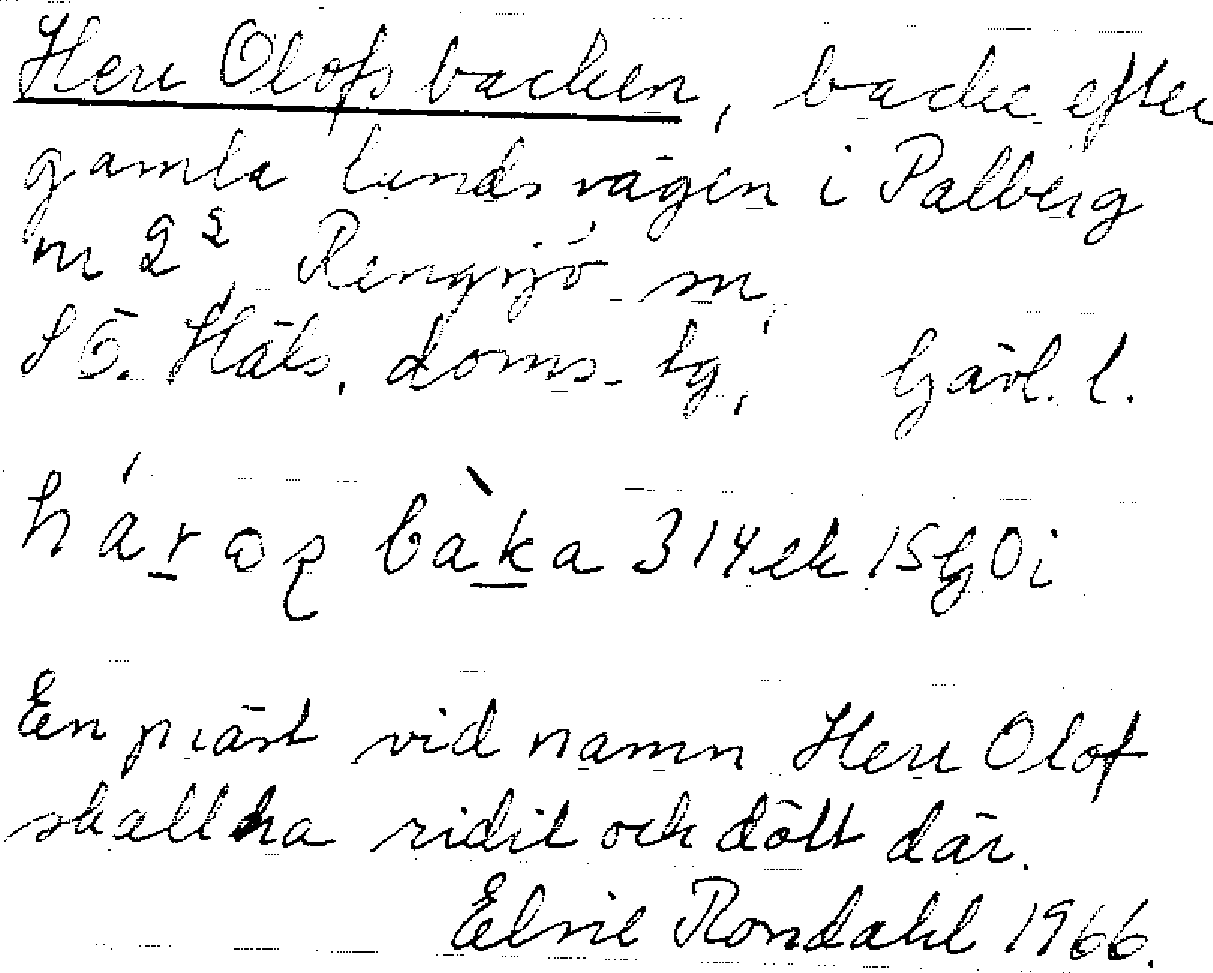 Herr Olofs backen, backe efter
gamla landsvägen i Palberg
nr 2² Rengsjö sn,
S Ö. Häls. doms. lg, Gävl. l.
bàka 314 ek 15 G Ö i
En präst vid namn Herr Olof
skall ha ridit och dött där.
Elvie Rondahl 1966.